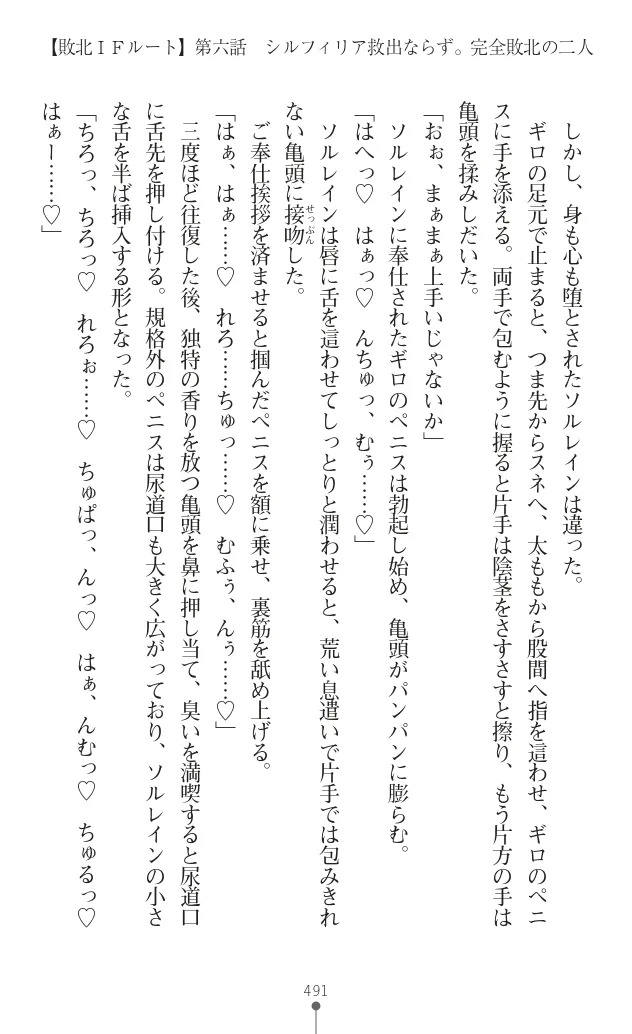 【敗北ＩＦルート】第六話　シルフィリア救出ならず。完全敗北の二人
しかし、身も心も堕とされたソルレインは違った。
ギロの足元で止まると、つま先からスネへ、太ももから股間へ指を這わせ、ギロのペニ
スに手を添える。両手で包むように握ると片手は陰茎をさすさすと擦り、もう片方の手は
亀頭を揉みしだいた。
「おぉ、まぁまぁ上手いじゃないか」
ソルレインに奉仕されたギロのペニスは勃起し始め、亀頭がパンパンに膨らむ。
「はへっ♡　はぁっ♡　んちゅっ、むぅ……♡」
ソルレインは唇に舌を這わせてしっとりと潤わせると、荒い息遣いで片手では包みきれ
ない亀頭に接吻せっぷんした。
ご奉仕挨拶を済ませると掴んだペニスを額に乗せ、裏筋を舐め上げる。
「はぁ、はぁ……♡　れろ……ちゅっ……♡　むふぅ、んぅ……♡」
三度ほど往復した後、独特の香りを放つ亀頭を鼻に押し当て、臭いを満喫すると尿道口
に舌先を押し付ける。規格外のペニスは尿道口も大きく広がっており、ソルレインの小さ
な舌を半ば挿入する形となった。
「ちろっ、ちろっ♡　れろぉ……♡　ちゅぱっ、んっ♡　はぁ、んむっ♡　ちゅるっ♡
はぁー……♡」
491